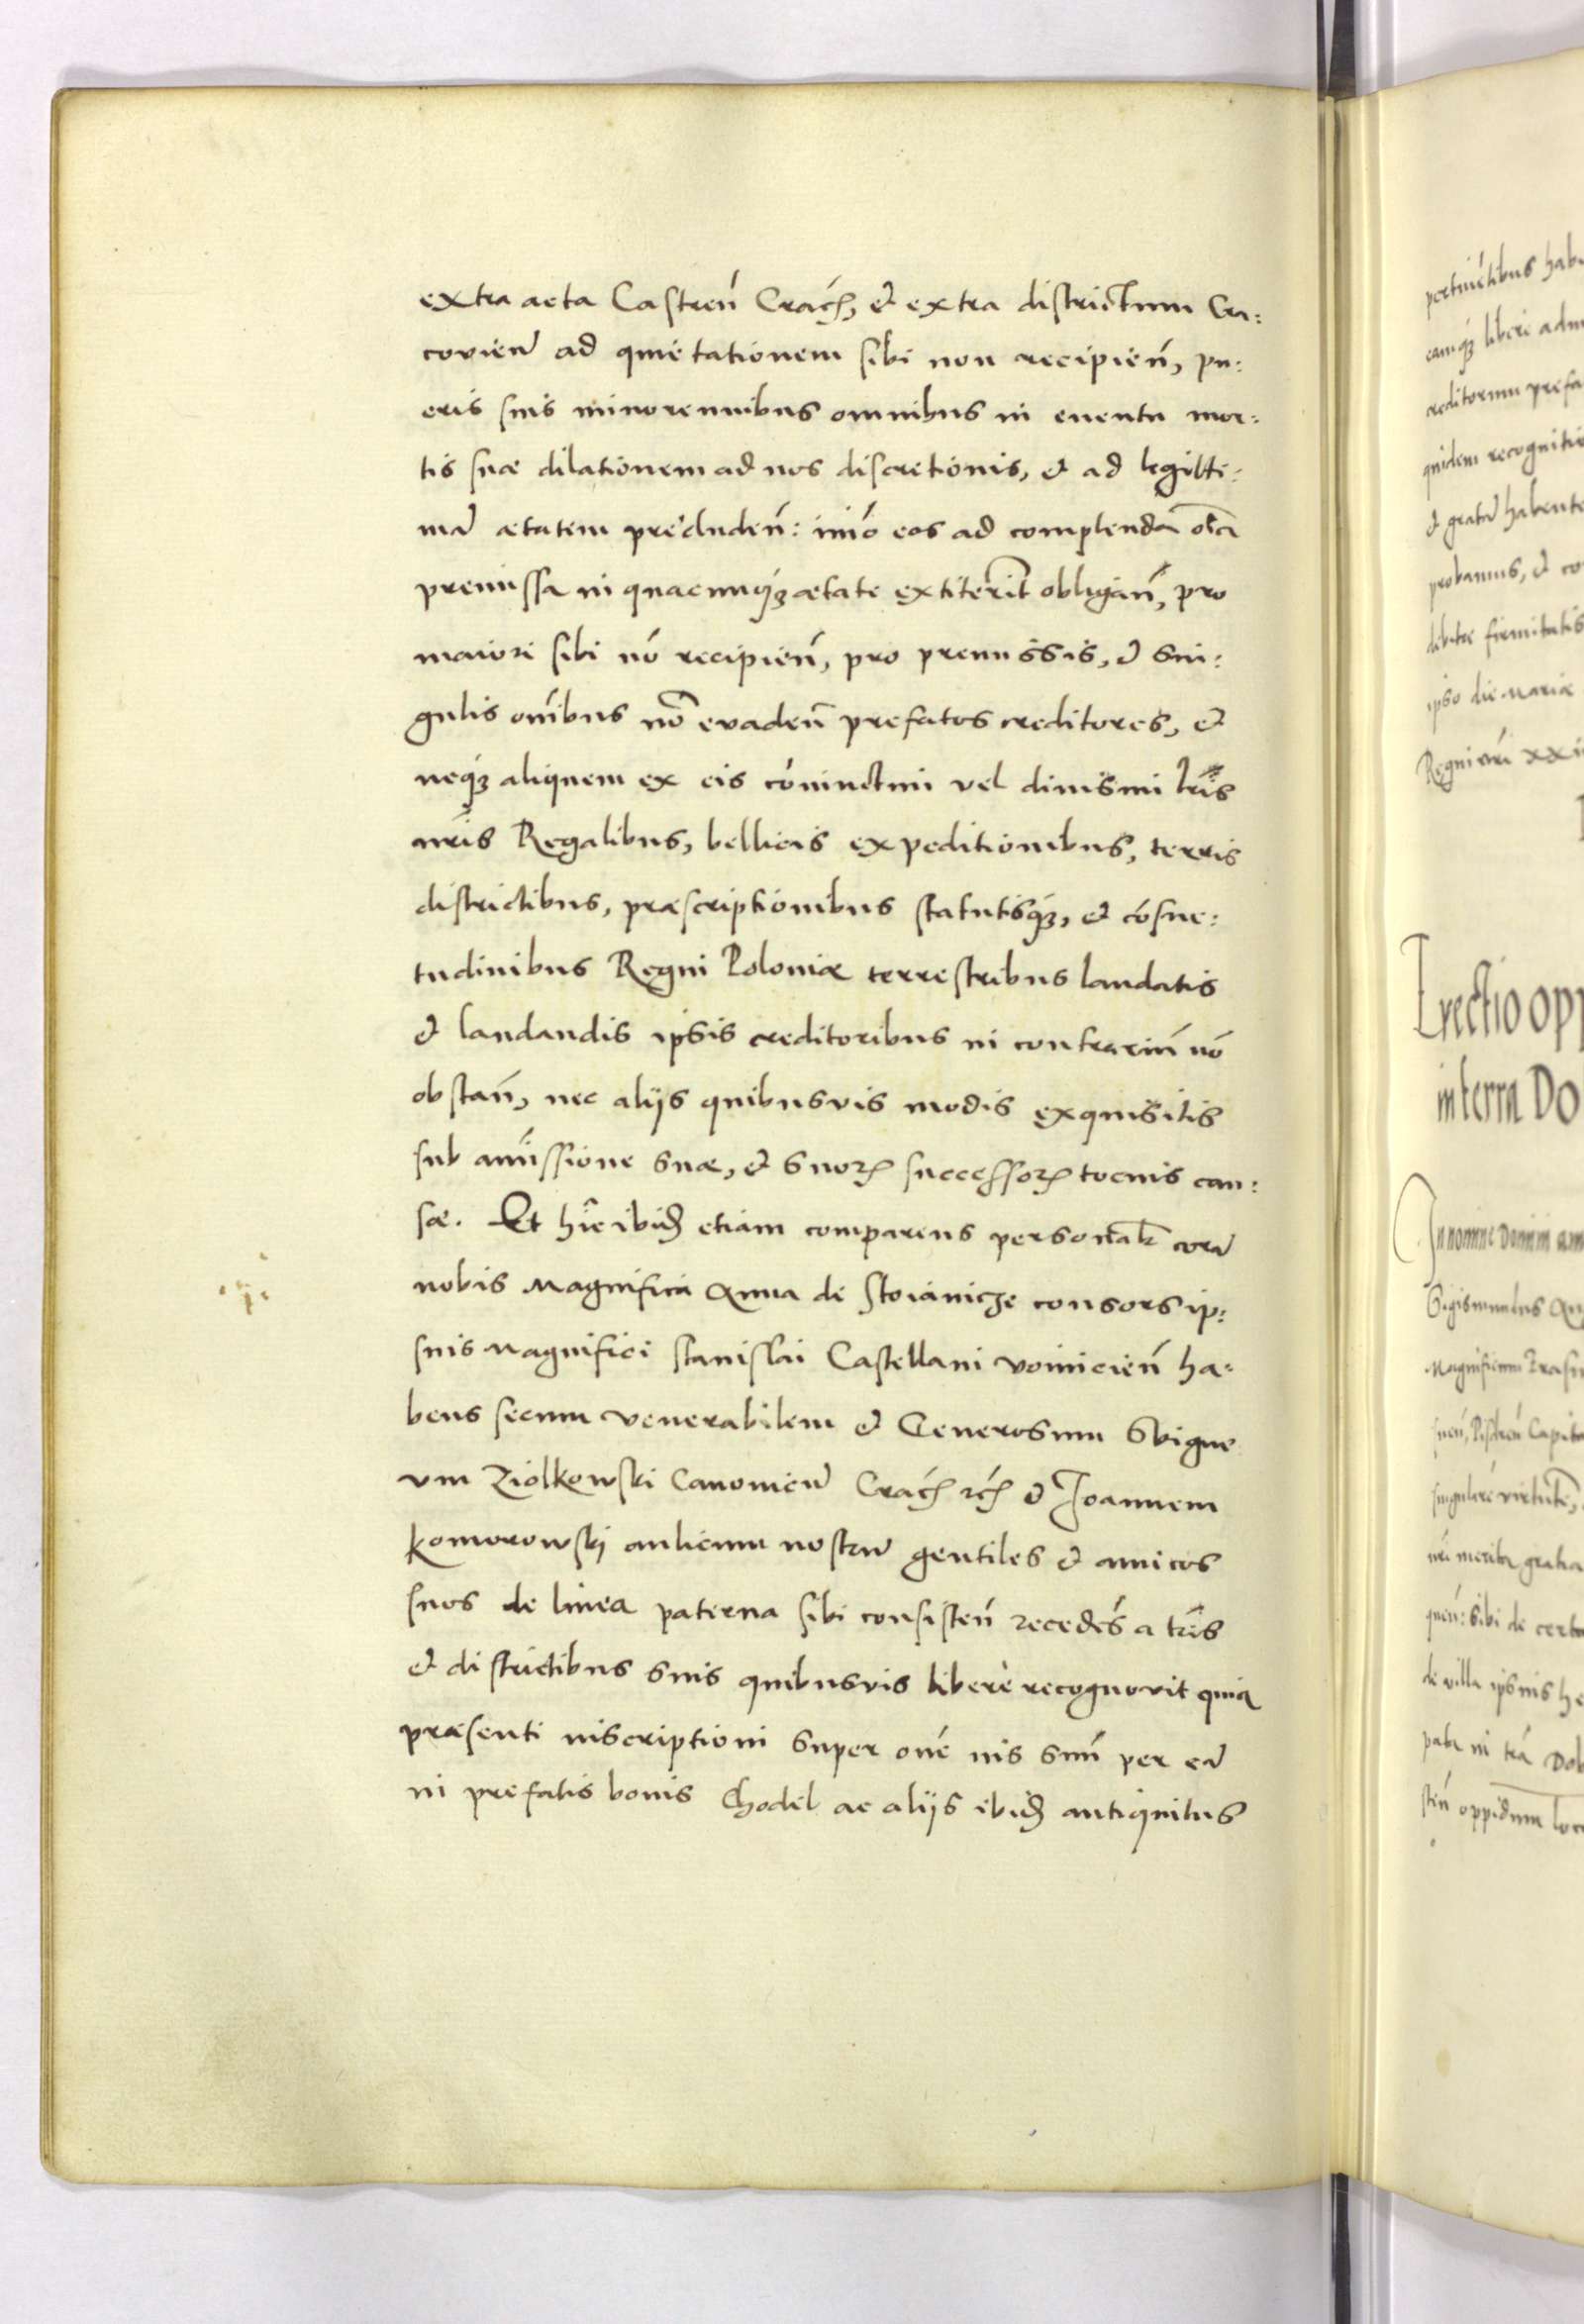 extra acta Castren̄ Cracȟ, et extra districtum Cra:
covien̄ ad quietationem sibi non recipien̄, pu:
eris suis minorennibus omnibus in euentu mor:
tis suæ dilationem ad nos discretionis, et ad legitti:
mā ætatem precluden̄: im̄o eos ad complenda oīa
premissa in quacunq́ꝫ ætate extiterīt obligan̄, pro
maiori sibi nō recipien̄, pro premissis, et sin:
gulis oīnibus nō evaden̄ prefatos creditores, et
neq́ꝫ aliquem ex eis cōiunctim vel diuisim lr̄is
nr̄is Regalibus, bellicis expeditionibus, terris
districtibus, præscriptionibus statutisq́ꝫ, et cōsue:
tudinibus Regni Poloniæ terrestribus laudatis
et laudandis ipsis creditoribus in contrariū nō
obstan̄, nec alijs quibusvis modis exquisitis
sub amissione suæ, et suoꝝ successoꝝ tocius cau:
sæ. Et hīc ibid̄ etiam comparens personal̄r corā
nobis Magnifica Anna de Stoianicze consors ip:
suis Magnifici Stanislai Castellani voinicien̄ ha:
bens secum venerabilem et Generosum Sbigne
um Ziolkowski Canonicū Cracȟ ꝛcȟ et Joannem
Komorowskj aulicum nostrū gentiles et amicos
suos de linea paterna sibi consisten̄ recedēs a tr̄is
et districtibus suis quibusvis liberè recognovit quia
præsenti inscriptioni super om̄e ius suū per eā
in prefatis bonis Chodel ac alijs ibid̄ antiquitus
pertinētibus
eamq́ꝫ liberi
creditorum
quidem
et gratā habente
probamus, et
firmitatis
ipso die Mariæ
Regni nr̄i
Erectio
in terra Do
In nomine Domini am
Sigismundus
Magnificum
singulare
sibi de
de villa ipsius
oppidum